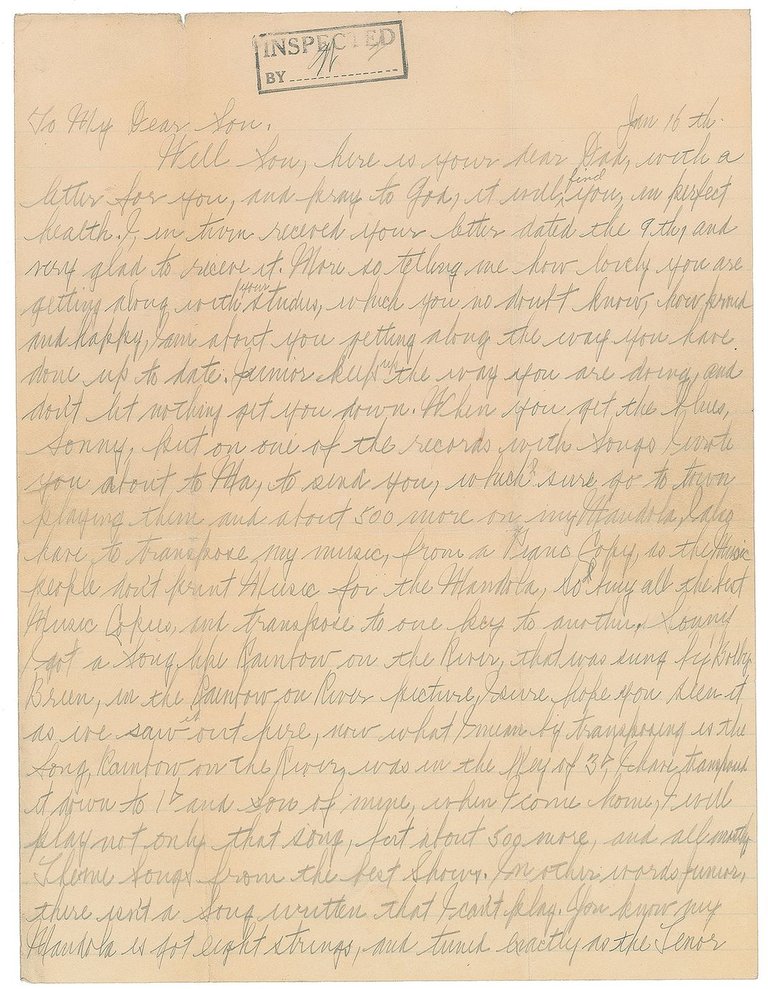 INSPECTED
BY
To My Dear Son. Jan 16 th.
Well Son, here is your dear Dad, with a
letter for you, and pray to God, it will, find you, in perfect
health. I, in turn receved your letter dated the 9th, and
very glad to receve it. More so telling me how lovly you are
getting along with your studies, which you no doubt know, how proud
and happy, I am about you getting along the way you have
done up to date. Junior keep up the way you are doing, and
don't let nothing get you down. When you get the blues,
Sonny, put on one of the records with songs I wrote
you about to Ma, to send you, which I sure go to town
playing them and about 500 more on my Mandola, I also
have, to transpose my music, from a Piano Copy, as the Music
people don't print Music for the Mandola, So I buy all the best
Music Copies, and transpose to one key to another. Sonny
I got a song like Rainbow on the River, that was sung by Bobby
Breen, in the Rainbow on River picture, I sure hope you seen it
as we saw it out here, now what I mean by transposing is the
Song, Rainbow on the River, was in the Key of 3b, I have transposed
it down to 1b and Son of mine, when I come home, I will
play not only that song, but about 500 more, and all mostly
Theme Songs from the best Shows. In other words Junior,
there isn't a Song written that I can't play. You know my
Mandola is got eight strings, and tuned exactly as the Tenor